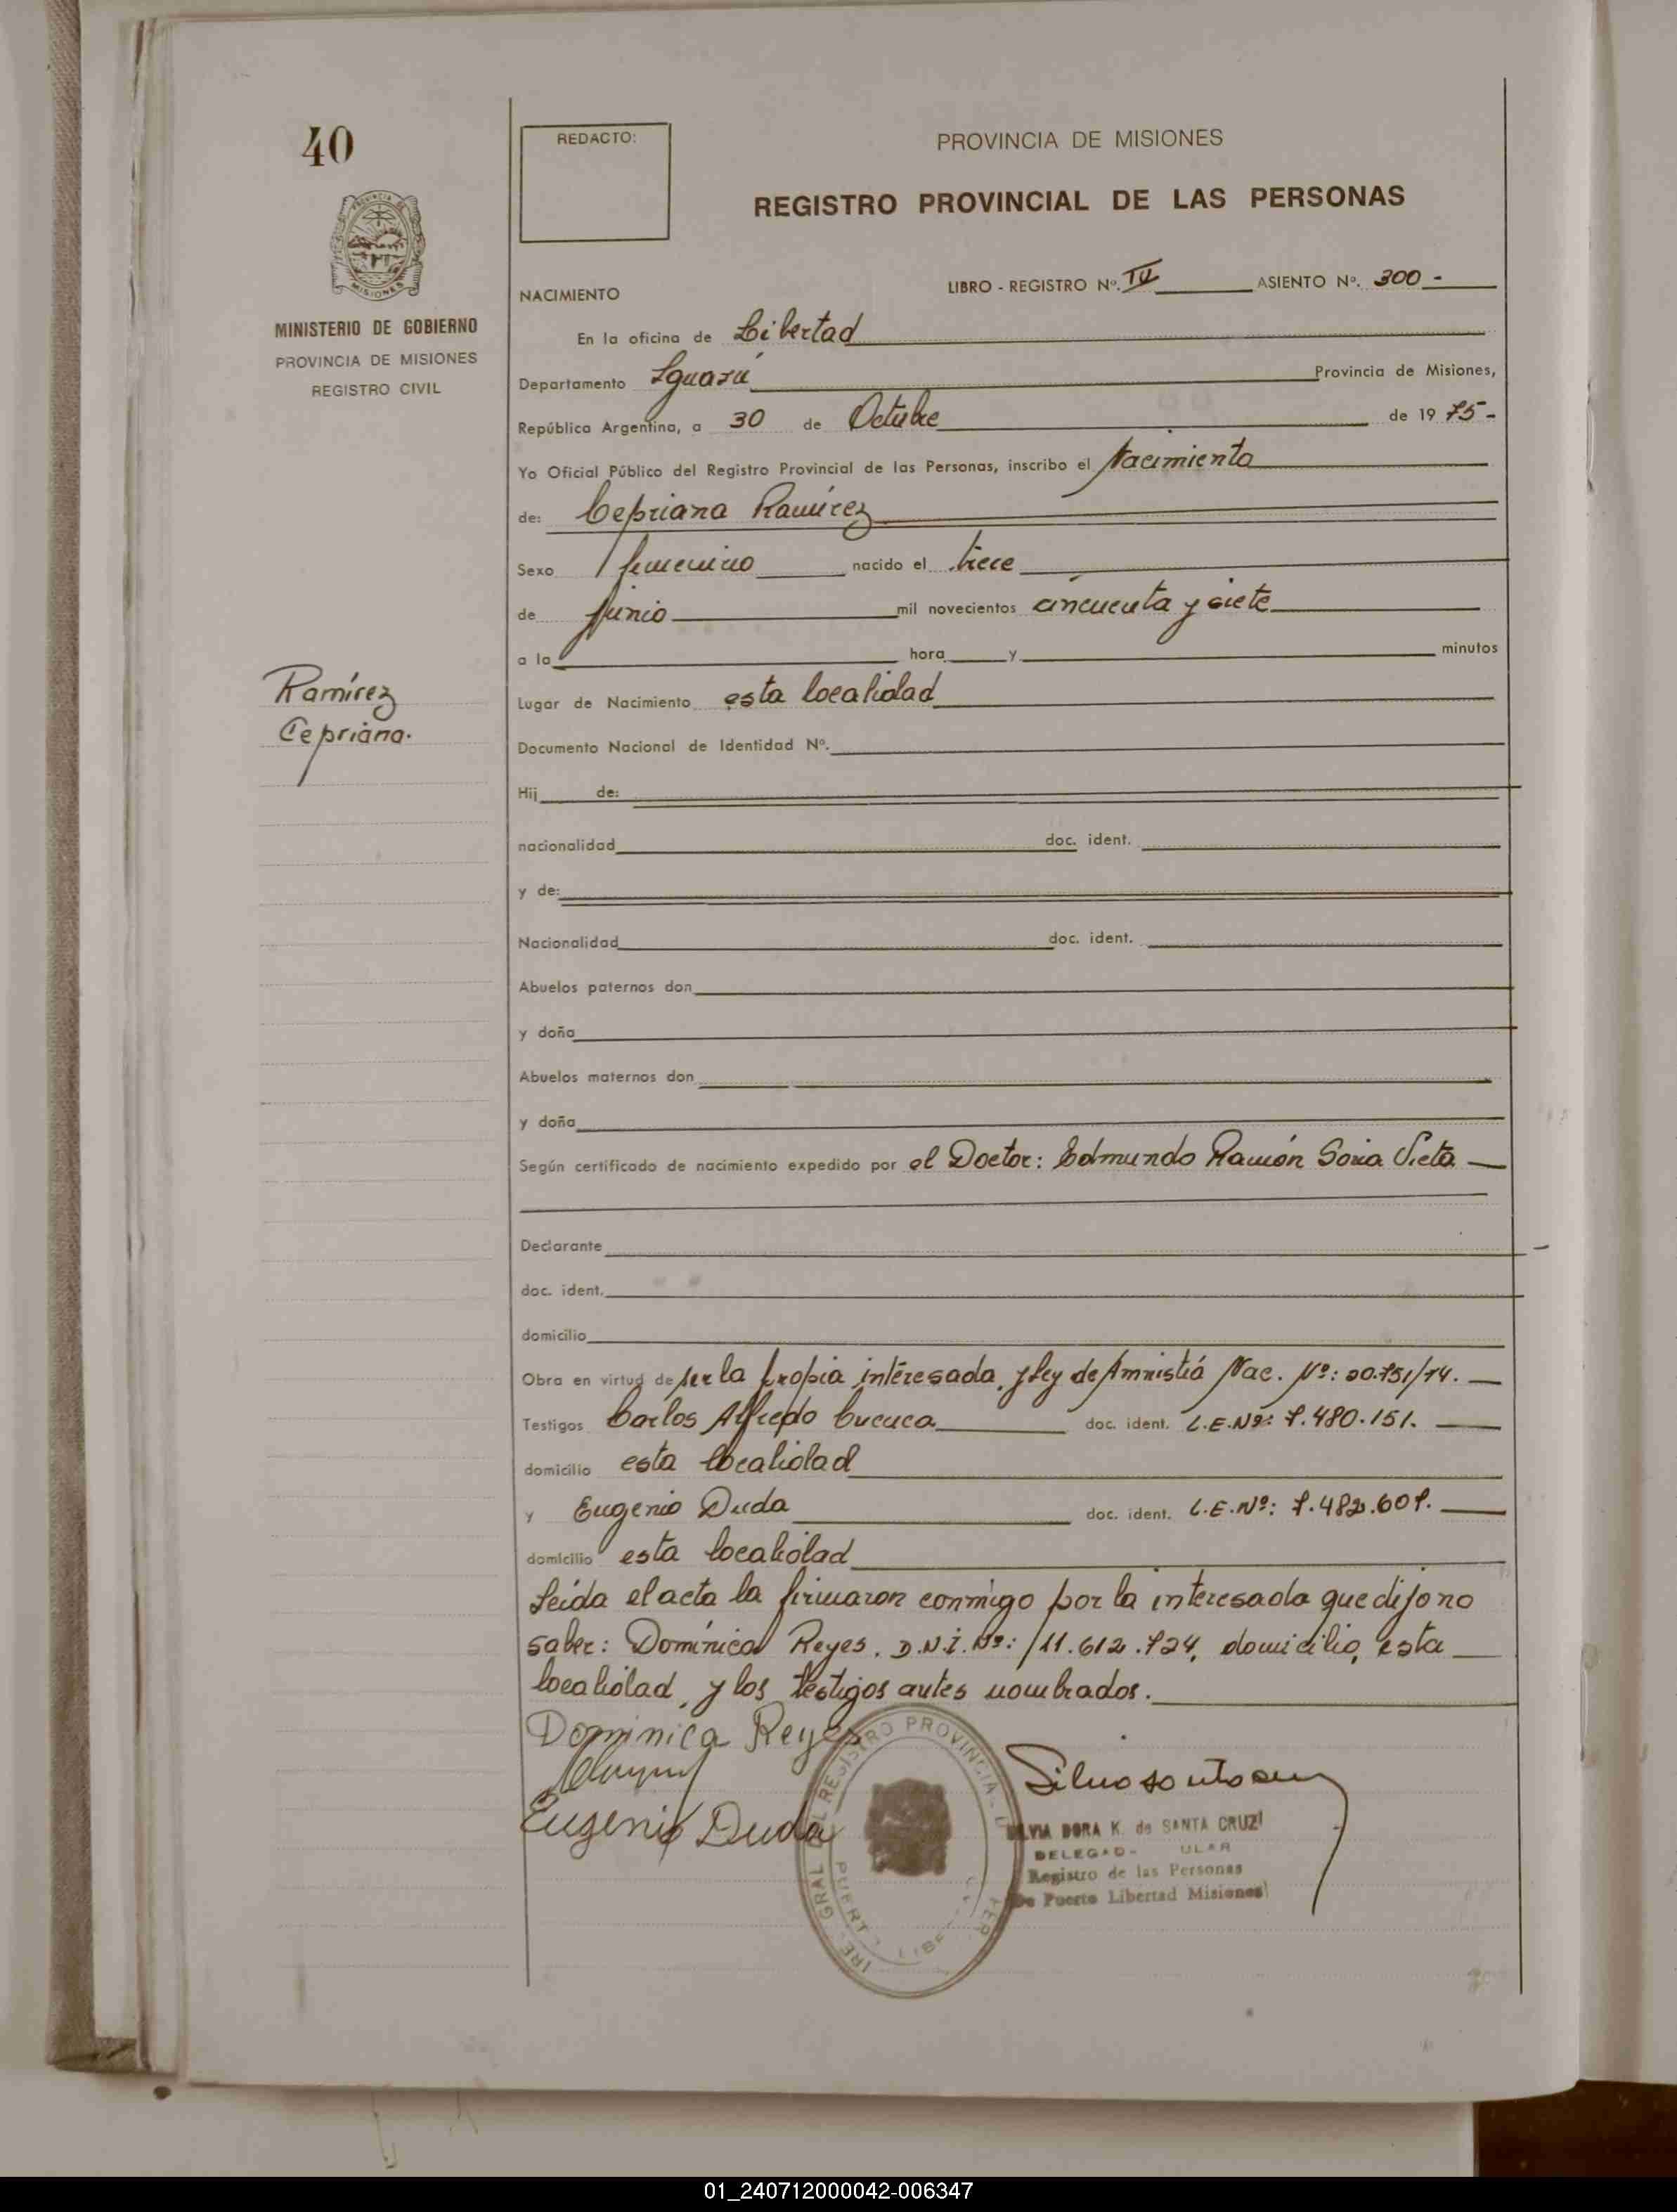 40
REDACTO:
PROVINCIA DE MISIONES
REGISTRO PROVINCIAL DE LAS PERSONAS
MINISTERIO DE GOBIERNO
PROVINCIA DE MISIONES
REGISTRO CIVIL
NACIMIENTO
LIBRO - REGISTRO Nº. IV ASIENTO Nº. 300 -
En la oficina de Libertad
Departamento Iguazú Provincia de Misiones,
República Argentina, a 30 de Octubre de 19 75 -
Yo Oficial Público del Registro Provincial de las Personas, inscribo el Nacimiento
de: Cepriana Ramírez
Sexo femenino nacido el trece
de junio mil novecientos cincuenta y siete
a la hora y minutos
Ramírez
Cepriana.
Lugar de Nacimiento esta localidad
Documento Nacional de Identidad Nº.
Hij de:
nacionalidad doc. ident.
y de:
Nacionalidad doc. ident.
Abuelos paternos don
y doña
Abuelos maternos don
y doña
Según certificado de nacimiento expedido por el Doctor: Edmundo Ramón Soria Vieta
Declarante
doc. ident.
domicilio
Obra en virtud de ser la propia interesada y ley de Amnistiá Nac. Nº: 20.751/74.
Testigos Carlos Alfredo doc. ident. L.E.Nº: 7.480.151.
domicilio esta localidad
y Eugenio Duda doc. ident. L.E.Nº: 7.482.607.
domicilio esta localidad
Leída el acta la firmaron conmigo por la interesada que dijo no
saber: Dominica Reyes. D.N.I. Nº: 11.612.724, domicilio, esta
localidad, y los testigos antes nombrados.
Dominica Reyes
Eugenio Duda
SILVIA DORA K. de SANTA CRUZ
Registro de las Personas
De Puerto Libertad Misiones
01_240712000042-006347